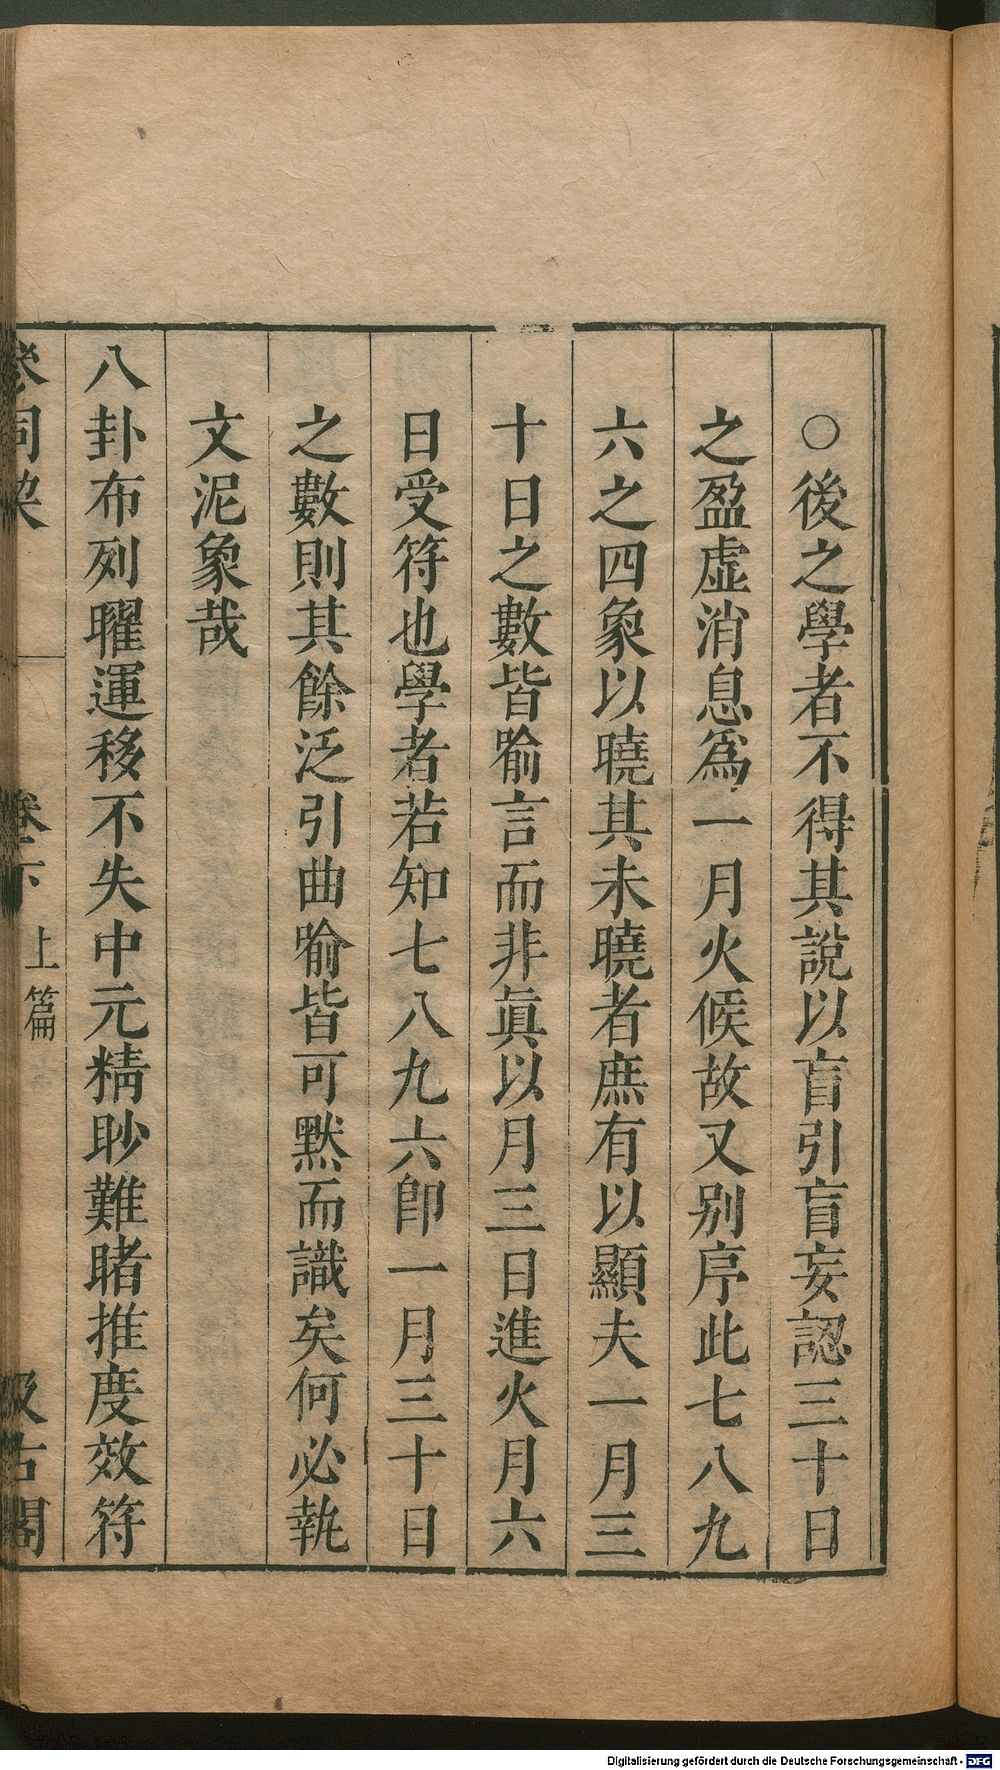 ○後之學者不得其說以盲引盲妄認三十日
之盈虛消息爲一月火候故又别序此七八九
六之四象以曉其未曉者庶有以顯夫一月三
十日之數皆喻言而非眞以月三日進火月六
日受符也學者若知七八九六卽一月三十日
之數則其餘泛引曲喻皆可默而識矣何必執
文泥象哉
八卦布列曜運移不失中元精眇難睹推度效符
參同契 卷下 上篇 汲古閣
Digitalisierung gefördert durch die Deutsche Forschungsgemeinschaft - DFG